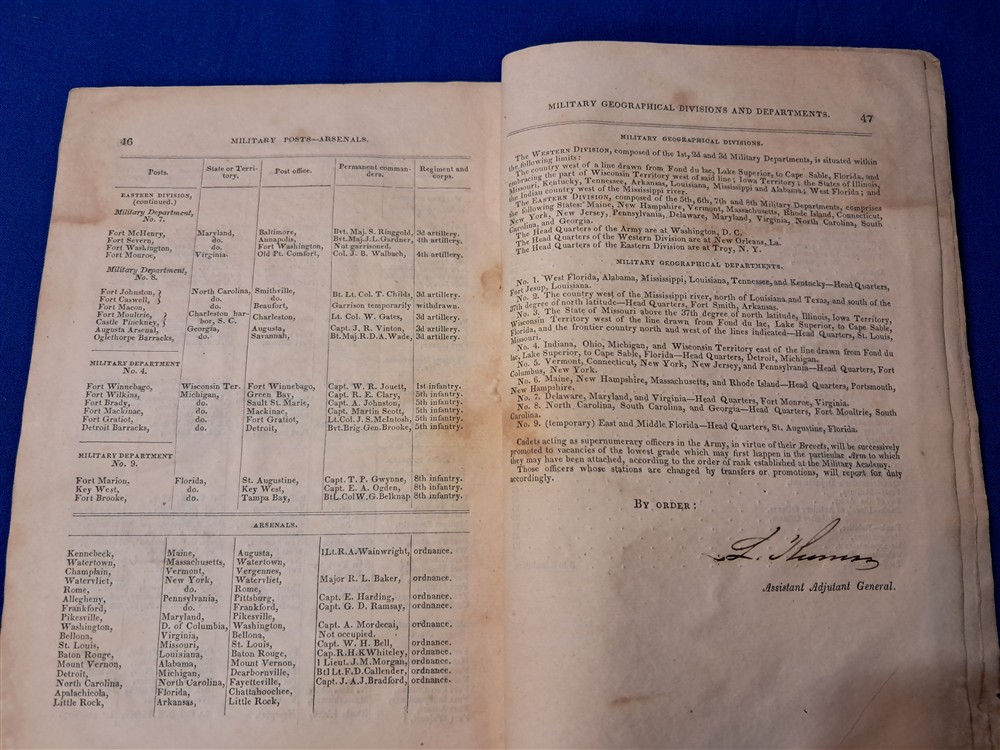 46 MILITARY POSTS—ARSENALS.
Posts. State or Terri- Post office. Permanent comman- Regiment and
tory. ders. corps.
EASTERN DIVISION,
(continued.)
Military Department,
No. 7.
Fort McHenry, Maryland, Baltimore, Bvt. Maj. S. Ringgold, 3d artillery.
Fort Severn, do. Annapolis, Bvt. Maj. J. L. Gardner, 4th artillery.
Fort Washington, do. Fort Washington, Not garrisoned.
Fort Monroe, Virginia. Old Pt. Comfort, Col. J. B. Walbach, 4th artillery.
Military Department,
No. 8.
Fort Johnston, } North Carolina, Smithville,
Fort Caswell, } do. do. Bt. Lt. Col. T. Childs, 3d artillery.
Fort Macon, do. Beaufort, Garrison temporarily withdrawn.
Fort Moultrie, } Charleston har- Charleston; Lt. Col. W. Gates, 3d artillery.
Castle Pinckney, } bor, S. C.
Augusta Arsenal, Georgia, Augusta, Capt. J. R. Vinton, 3d artillery.
Oglethorpe Barracks, do. Savannah, Bt. Maj. R. D. A. Wade, 3d artillery.
MILITARY DEPARTMENT
No. 4.
Fort Winnebago, Wisconsin Ter. Fort Winnebago, Capt. W. R. Jouett, 1st infantry.
Fort Wilkins, Michigan, Green Bay, Capt. R. E. Clary, 5th infantry.
Fort Brady, do. Sault St. Marie, Capt. A. Johnston, 5th infantry.
Fort Mackinac, do. Mackinac, Capt. Martin Scott, 5th infantry.
Fort Gratiot, do. Fort Gratiot, Lt. Col. J. S. McIntosh, 5th infantry.
Detroit Barracks, do. Detroit, Bvt. Brig. Gen. Brooke, 5th infantry.
MILITARY DEPARTMENT
No. 9.
Fort Marion, Florida, St. Augustine, Capt. T. P. Gwynne, 8th infantry.
Key West, do. Key West, Capt. E. A. Ogden, 8th infantry.
Fort Brooke, do. Tampa Bay, Bt. Lt. Col W. G. Belknap 8th infantry.
ARSENALS.
Kennebeck, Maine, Augusta, 1 Lt. R. A. Wainwright, ordnance.
Watertown, Massachusetts, Watertown,
Champlain, Vermont, Vergennes,
Watervliet, New York, Watervliet, Major R. L. Baker, ordnance.
Rome, do. Rome,
Allegheny, Pennsylvania, Pittsburg, Capt. E. Harding, ordnance.
Frankford, do. Frankford, Capt. G. D. Ramsay, ordnance.
Pikesville, Maryland, Pikesville,
Washington, D. of Columbia, Washington, Capt. A. Mordecai, ordnance.
Bellona, Virginia, Bellona, Not occupied.
St. Louis, Missouri, St. Louis, Capt. W. H. Bell, ordnance.
Baton Rouge, Louisiana, Baton Rouge, Cap. R. H. K Whiteley, ordnance.
Mount Vernon, Alabama, Mount Vernon, 1 Lieut. J. M. Morgan, ordnance.
Detroit, Michigan, Dearbornville, Bt 1 Lt. F. D. Callender, ordnance.
North Carolina, North Carolina, Fayetteville, Capt. J. A. J. Bradford, ordnance.
Apalachicola, Florida, Chattahoochee,
Little Rock, Arkansas, Little Rock,
MILITARY GEOGRAPHICAL DIVISIONS AND DEPARTMENTS. 47
MILITARY GEOGRAPHICAL DIVISIONS.
The WESTERN DIVISION, composed of the 1st, 2d and 3d Military Departments, is situated within
the following limits:
The country west of a line drawn from Fond du lac, Lake Superior, to Cape Sable, Florida, and
embracing the part of Wisconsin Territory west of said line; Iowa Territory; the States of Illinois,
Missouri, Kentucky, Tennessee, Arkansas, Louisiana, Mississippi and Alabama; West Florida; and
the Indian country west of the Mississippi river.
The EASTERN DIVISION, composed of the 5th, 6th, 7th and 8th Military Departments, comprises
the following States: Maine, New Hampshire, Vermont, Massachusetts, Rhode Island, Connecticut,
New York, New Jersey, Pennsylvania, Delaware, Maryland, Virginia, North Carolina, South
Carolina, and Georgia.
The Head Quarters of the Army are at Washington, D. C.
The Head Quarters of the Western Division are at New Orleans, La.
The Head Quarters of the Eastern Division are at Troy, N. Y.
MILITARY GEOGRAPHICAL DEPARTMENTS.
No. 1. West Florida, Alabama, Mississippi, Louisiana, Tennessee, and Kentucky—Head Quarters,
Fort Jesup, Louisiana.
No. 2. The country west of the Mississippi river, north of Louisiana and Texas, and south of the
37th degree of north latitude—Head Quarters, Fort Smith, Arkansas.
No. 3. The State of Missouri above the 37th degree of north latitude, Illinois, Iowa Territory,
Wisconsin Territory west of the line drawn from Fond du lac, Lake Superior, to Cape Sable,
Florida, and the frontier country north and west of the lines indicated—Head Quarters, St. Louis,
Missouri.
No. 4. Indiana, Ohio, Michigan, and Wisconsin Territory east of the line drawn from Fond du
lac, Lake Superior, to Cape Sable, Florida—Head Quarters, Detroit, Michigan.
No. 5. Vermont, Connecticut, New York, New Jersey, and Pennsylvania—Head Quarters, Fort
Columbus, New York.
No. 6. Maine, New Hampshire, Massachusetts, and Rhode Island—Head Quarters, Portsmouth,
New Hampshire.
No. 7. Delaware, Maryland, and Virginia—Head Quarters, Fort Monroe, Virginia.
No. 8. North Carolina, South Carolina, and Georgia—Head Quarters, Fort Moultrie, South
Carolina.
No. 9. (temporary) East and Middle Florida—Head Quarters, St. Augustine, Florida.
Cadets acting as supernumerary officers in the Army, in virtue of their Brevets, will be successively
promoted to vacancies of the lowest grade which may first happen in the particular Arm to which
they may have been attached, according to the order of rank established at the Military Academy.
Those officers whose stations are changed by transfers or promotions, will report for duty
accordingly.
BY ORDER:
Assistant Adjutant General.